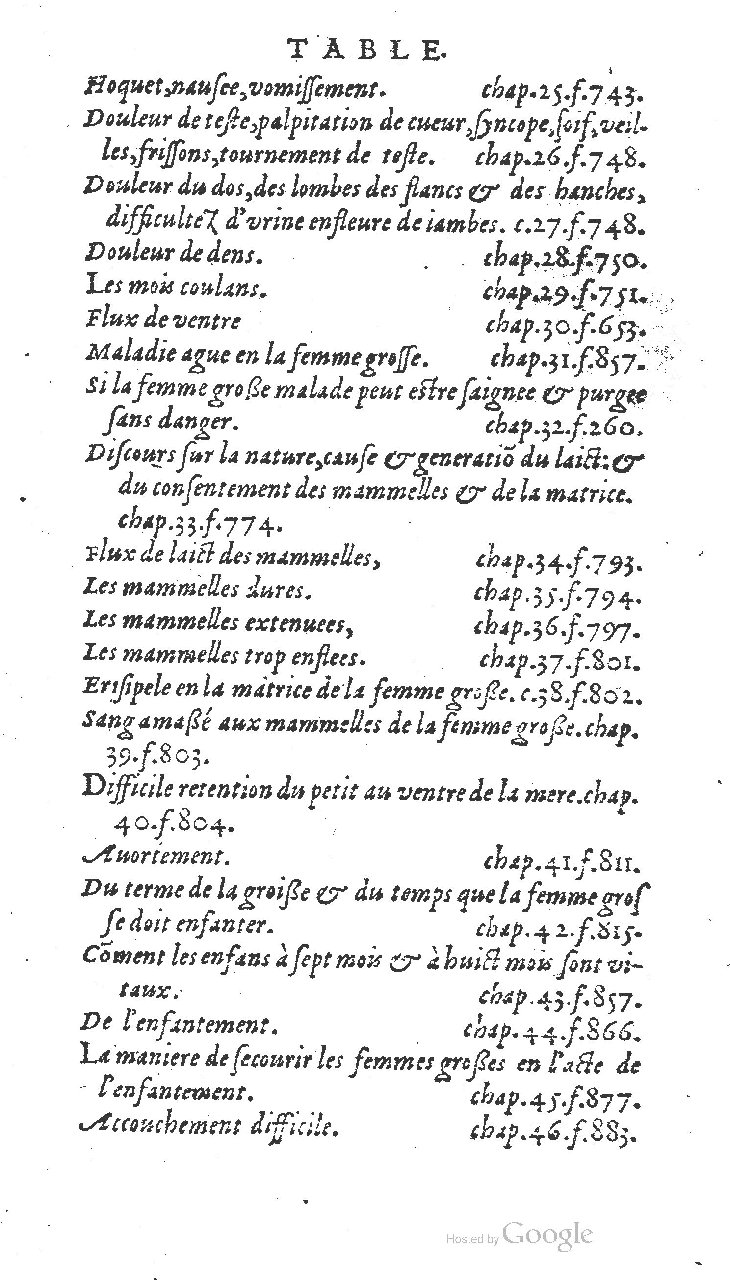 TABLE.
Hoquet, nausee, vomiſſement. chap.25.f.743.
Douleur de teſte, palpitation de cueur, ſyncope, ſoif, veil-
les, friſſons, tournement de teſte. chap.26.f.748.
Douleur du dos, des lombes des flancs & des hanches,
difficultez d'vrine enfleure de iambes. c.27.f.748.
Douleur de dens. chap.28.f.750.
Les mois coulans. chap.29.f.751.
Flux de ventre chap.30.f.653.
Maladie ague en la femme groſſe. chap.31.f.857.
Si la femme große malade peut eſtre ſaignee & purgee
ſans danger. chap.32.f.260.
Diſcours ſur la nature, cauſe & generatiõ du laict: &
du conſentement des mammelles & de la matrice.
chap.33.f.774.
Flux de laict des mammelles, chap.34.f.793.
Les mammelles dures. chap.35.f.794.
Les mammelles extenuees, chap.36.f.797.
Les mammelles trop enflees. chap.37.f.801.
Eriſipele en la matrice de la femme große. c.38.f.802.
Sang amaßé aux mammelles de la femme große. chap.
39.f.803.
Difficile retention du petit au ventre de la mere. chap.
40.f.804.
Auortement. chap.41.f.811.
Du terme de la groiße & du temps que la femme groſ
ſe doit enfanter. chap.42.f.815.
Cõment les enfans à ſept mois & à huict mois ſont vi-
taux. chap.43.f.857.
De l'enfantement. chap.44.f.866.
La maniere de ſecourir les femmes großes en l'acte de
l'enfantement. chap.45.f.877.
Accouchement difficile. chap.46.f.883.
Hosted by Google